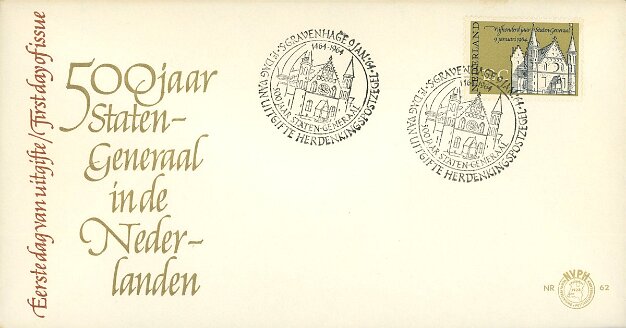 Eerste dag van uitgifte / First day of issue
500 jaar
Staten-
Generaal
in de
Neder-
landen
'S GRAVENHAGE 9 JAN '64
1464-1964
500 JAAR STATEN-GENERAAL
1E DAG VAN UITGIFTE HERDENKINGSPOSTZEGEL
NEDERLAND
Vijfhonderd jaar Staten Generaal
9 januari 1964
'S GRAVENHAGE 9 JAN '64
1464-1964
500 JAAR STATEN-GENERAAL
1E DAG VAN UITGIFTE HERDENKINGSPOSTZEGEL
NR
N.V.P.H.
62